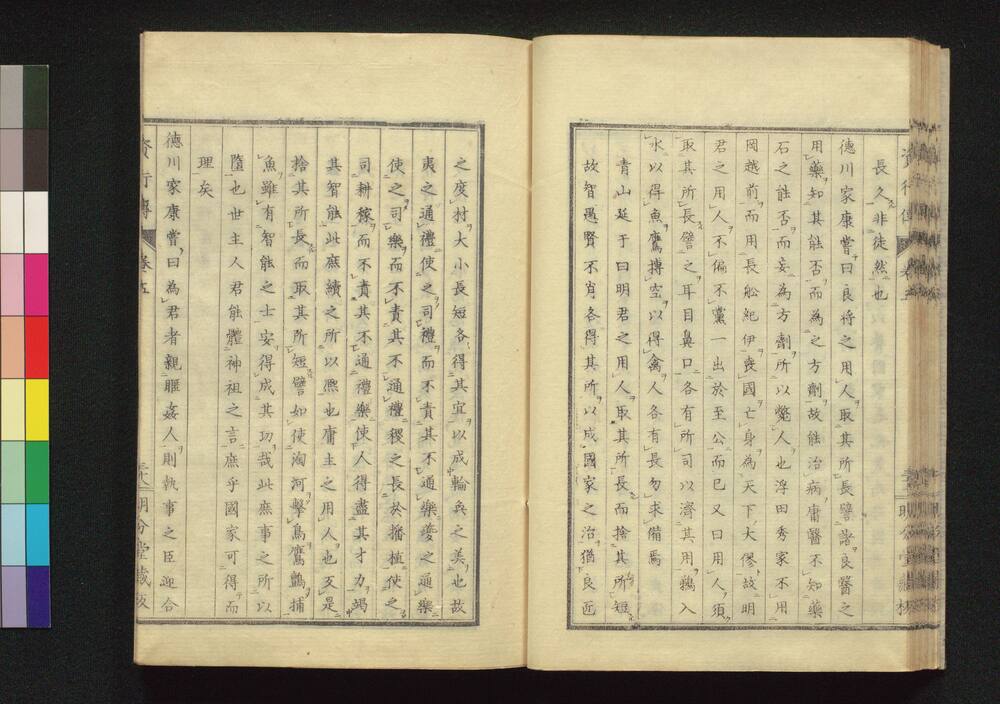 長久非徒然也
德川家康嘗曰良將之用人取其所長譬諸良醫之
用藥知其能否而為之方劑故能治病庸醫不知藥
石之能否而妄為方劑所以斃人也浮田秀家不用
岡越前而用長舩紀伊喪國亡身為天下大僇故明
君之用人不偏不黨一出於至公而已又曰用人須
取其所長譬之耳目鼻口各有所司以濟其用鵜入
水以得魚鷹摶空以得禽人各有長勿求備焉
青山延于曰明君之用人取其所長而捨其所短
故智愚賢不肖各得其所以成國家之治猶良匠
之度村大小長短各得其宜以成輪奐之美也故
夷之通禮使之司禮而不責其不通樂夔之通樂
使之司樂而不責其不通禮稷之長於播植使之
司耕稼而不責其不通禮樂使人得盡其才力竭
其智能此庶績之所以凞也庸主之用人也反是
捨其所長而取其所短譬如使淘河擊鳥鷹鸇捕
魚雖有智能之士安得成其功哉此庶事之所以
隳也世主人君能體神祖之言庶乎國家可得而
理矣
德川家康嘗曰為君者親暱姦人則執事之臣迎合
資行傳 卷之五 三十八 明分堂藏板